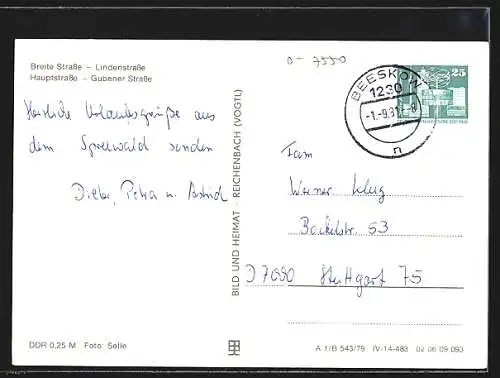 Breite Straße – Lindenstraße
Hauptstraße – Gubener Straße
Herzliche Urlaubsgrüße aus
dem Spreewald senden
Dieter, Petra u. Astrid
BILD UND HEIMAT REICHENBACH (VOGTL)
DDR 0,25 M Foto: Selle
0- 7550
BEESKOW
1230
25
Fam
Werner Klug
Böckelstr. 53
D 7000 Stuttgart 75
A 1/B 543/79 IV-14-483 02 06 09 093